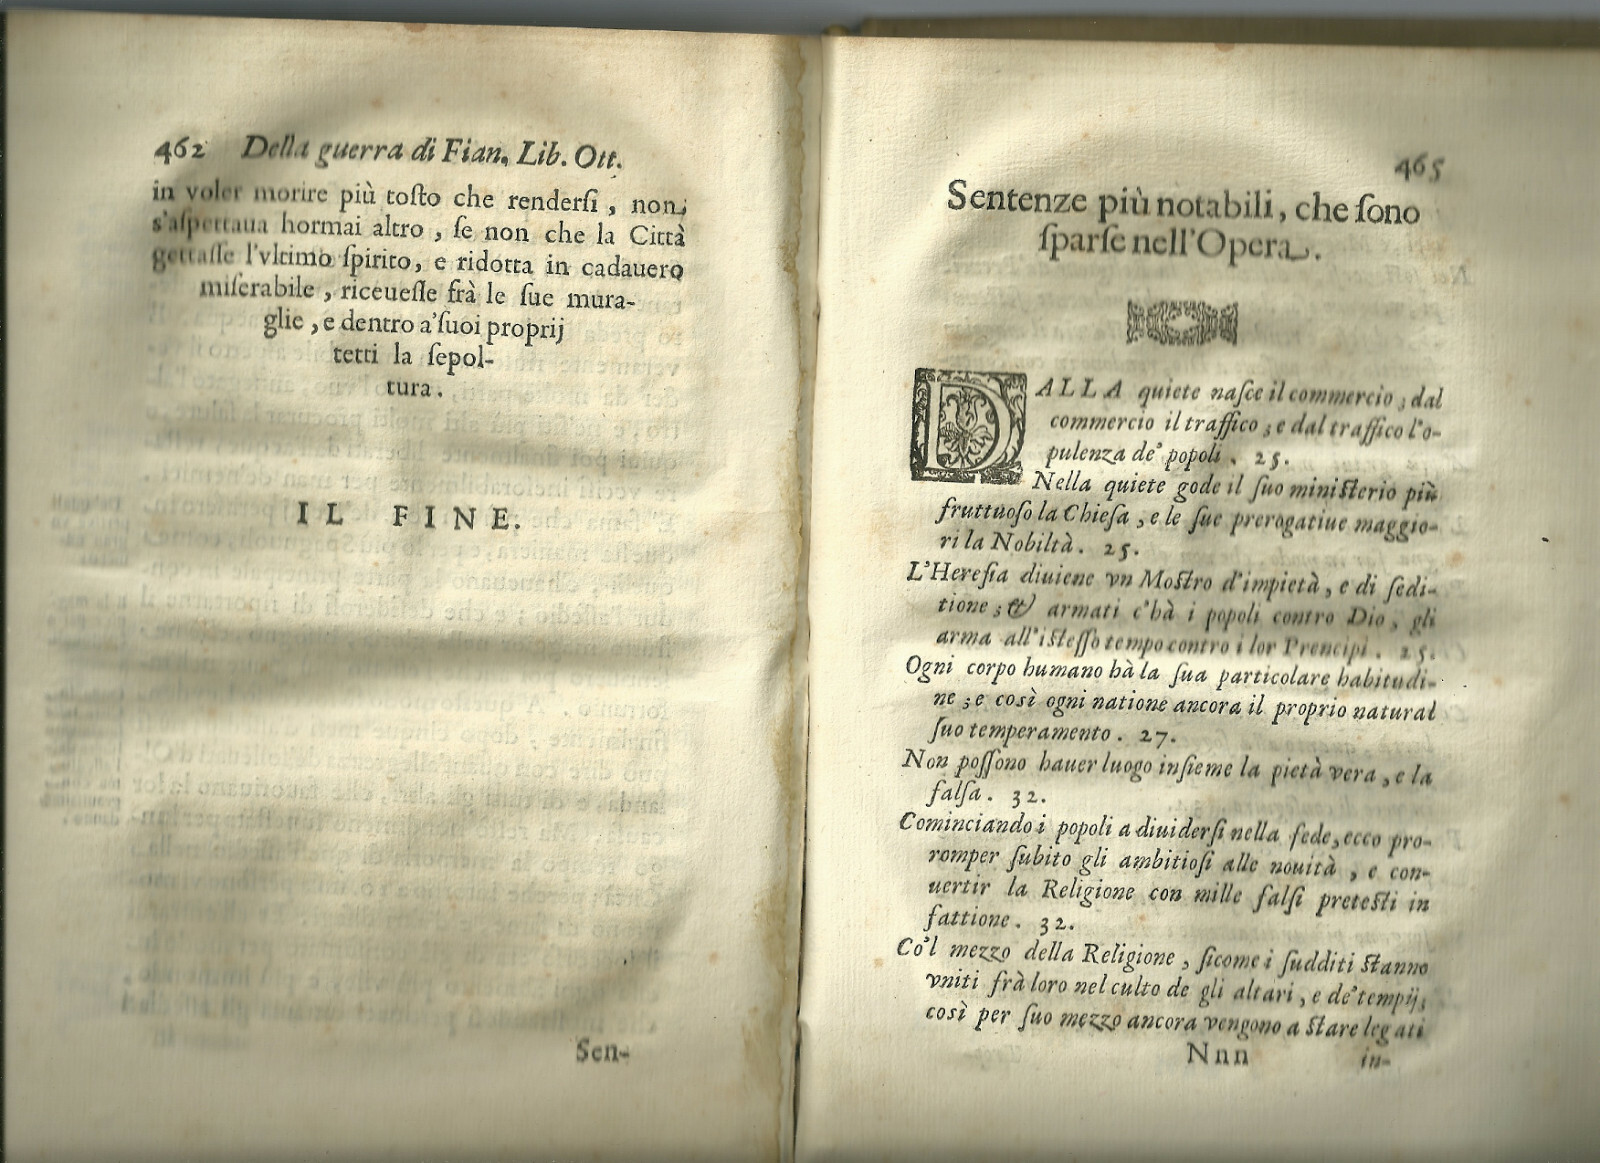 462 Della guerra di Fian. Lib. Ott.
in voler morire più toſto che renderſi, non
s'aſpettaua hormai altro, ſe non che la Città
gettaſſe l'vltimo ſpirito, e ridotta in cadauero
miſerabile, riceueſſe frà le ſue mura-
glie, e dentro a'ſuoi proprij
tetti la ſepol-
tura.
IL FINE.
Sen-
465
Sentenze più notabili, che ſono
ſparſe nell'Opera.
DALLA quiete naſce il commercio; dal
commercio il traffico; e dal traffico l'o-
pulenza de' popoli. 25.
Nella quiete gode il ſuo miniſterio più
fruttuoſo la Chieſa, e le ſue prerogatiue maggio-
ri la Nobiltà. 25.
L'Hereſia diuiene vn Moſtro d'impietà, e di ſedi-
tione; & armati c'hà i popoli contro Dio, gli
arma all'iſteſſo tempo contro i lor Prencipi. 25.
Ogni corpo humano hà la ſua particolare habitudi-
ne; e così ogni natione ancora il proprio natural
ſuo temperamento. 27.
Non poſſono hauer luogo inſieme la pietà vera, e la
falſa. 32.
Cominciando i popoli a diuiderſi nella fede, ecco pro-
romper ſubito gli ambitioſi alle nouità, e con-
uertir la Religione con mille falſi preteſti in
fattione. 32.
Co'l mezzo della Religione, ſicome i ſudditi ſtanno
vniti frà loro nel culto de gli altari, e de' tempij;
così per ſuo mezzo ancora vengono a ſtare legati
Nnn in-